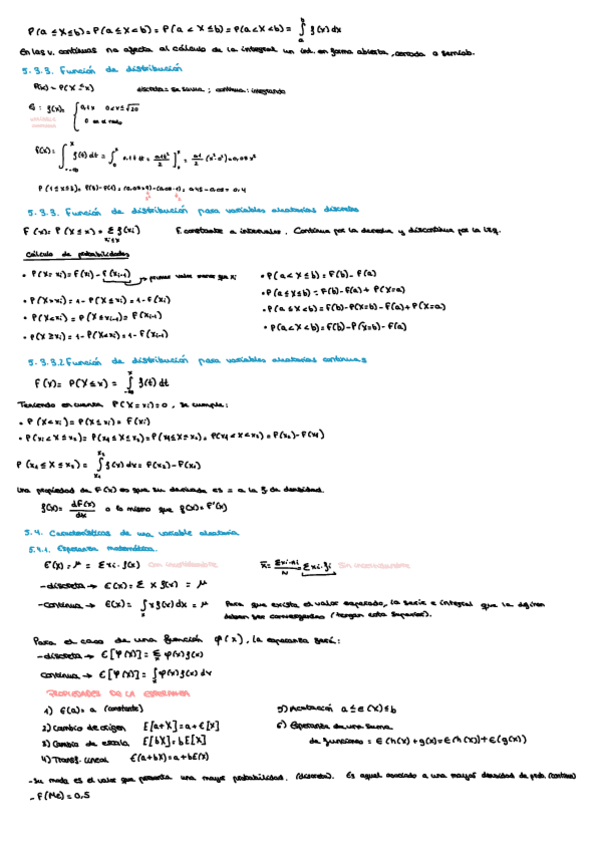 P(a ≤ X ≤ b) = P(a ≤ X < b) = P(a < X ≤ b) = P(a < X < b) = ∫ₐᵇ f(x) dx
En las v. continuas no afecta al cálculo de la integral un int. en forma abierta, cerrada o semiab.
5.3.3. Función de distribución
F(x) = P(X ≤ x) discreta = se suma ; continua: integrando
f(x) = { 0,1x 0 < x ≤ √20
0 en el resto
F(x) = ∫ f(t) dt = ∫ 0.1t dt = 0.1t²/2 ] = 0.1/2 (x²-0²) = 0,05x²
5.3.3. Función de distribución para variables aleatorias discretas
F(x) = P(X ≤ x) = Σ f(xi) F. constante a intervalos. Continua por la derecha y discontinua por la izq.
Cálculo de probabilidades
• P(X = xi) = F(xi) - F(xi-1) → primer valor menor que xi • P(a < X ≤ b) = F(b) - F(a)
• P(X > xi) = 1 - P(X ≤ xi) = 1 - F(xi) • P(a ≤ X ≤ b) = F(b) - F(a) + P(X=a)
• P(X < xi) = P(X ≤ xi-1) = F(xi-1) • P(a ≤ X < b) = F(b) - P(X=b) - F(a) + P(X=a)
• P(X ≥ xi) = 1 - P(X < xi) = 1 - F(xi-1) • P(a < X < b) = F(b) - P(X=b) - F(a)
5.3.3.2 Función de distribución para variables aleatorias continuas
F(x) = P(X ≤ x) = ∫ f(t) dt
Teniendo en cuenta P(X = xi) = 0, se cumple:
• P(X < xi) = P(X ≤ xi) = F(xi)
• P(x1 < X ≤ x2) = P(x1 ≤ X ≤ x2) = P(x1 ≤ X < x2) = P(x1 < X < x2) = F(x2) - F(x1)
P(x1 ≤ X ≤ x2) = ∫ f(x) dx = F(x2) - F(x1)
Una propiedad de F(x) es que su derivada es = a la f de densidad.
f(x) = dF(x)/dx o lo mismo que f(x) = F'(x)
5.4. Características de una variable aleatoria
5.4.1. Esperanza matemática.
E(X) = μ = Σ xi · f(x) Con incertidumbre x̄ = Σxi·ni/N = Σ xi · fi Sin incertidumbre
- discreta → E(X) = Σ x f(x) = μ
- continua → E(X) = ∫ x f(x) dx = μ Para que exista el valor esperado, la serie e integral que la definen
deben ser convergentes (tengan cota superior).
Para el caso de una función φ(x), la esperanza será:
- discreta → E[φ(X)] = Σ φ(x) f(x)
continua → E[φ(X)] = ∫ φ(x) f(x) dx
PROPIEDADES DE LA ESPERANZA
1) E(a) = a (constante) 5) Acotación a ≤ E(X) ≤ b
2) Cambio de origen E[a+X] = a + E[X] 6) Esperanza de una suma
3) Cambio de escala E[bX] = bE[X] de funciones = E(h(x) + g(x)) = E(h(x)) + E(g(x))
4) Transf. Lineal E(a+bX) = a + bE(X)
- Su moda es el valor que presenta una mayor probabilidad. (discreta). Es aquel asociado a una mayor densidad de prob. (continua)
- F(Me) = 0,5